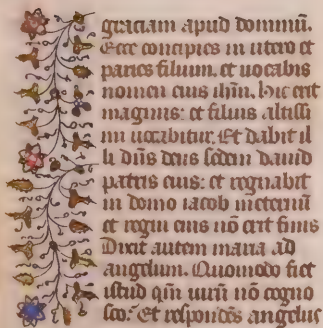 graciam apud dominū.
Ecce concipies in utero et
paries filium. et uocabis
nomen eius ihm̄. hic erit
magnus: et filius altissi
mi uocabitur. Et dabit il
li dn̄s deus sedem dauid
patris eius: et regnabit
in domo iacob ineternū
et regni eius nō erit finis
Dixit autem maria ad
angelum. Quomodo fiet
istud qm̄ uirū nō cogno
sco: Et respondēs angelus